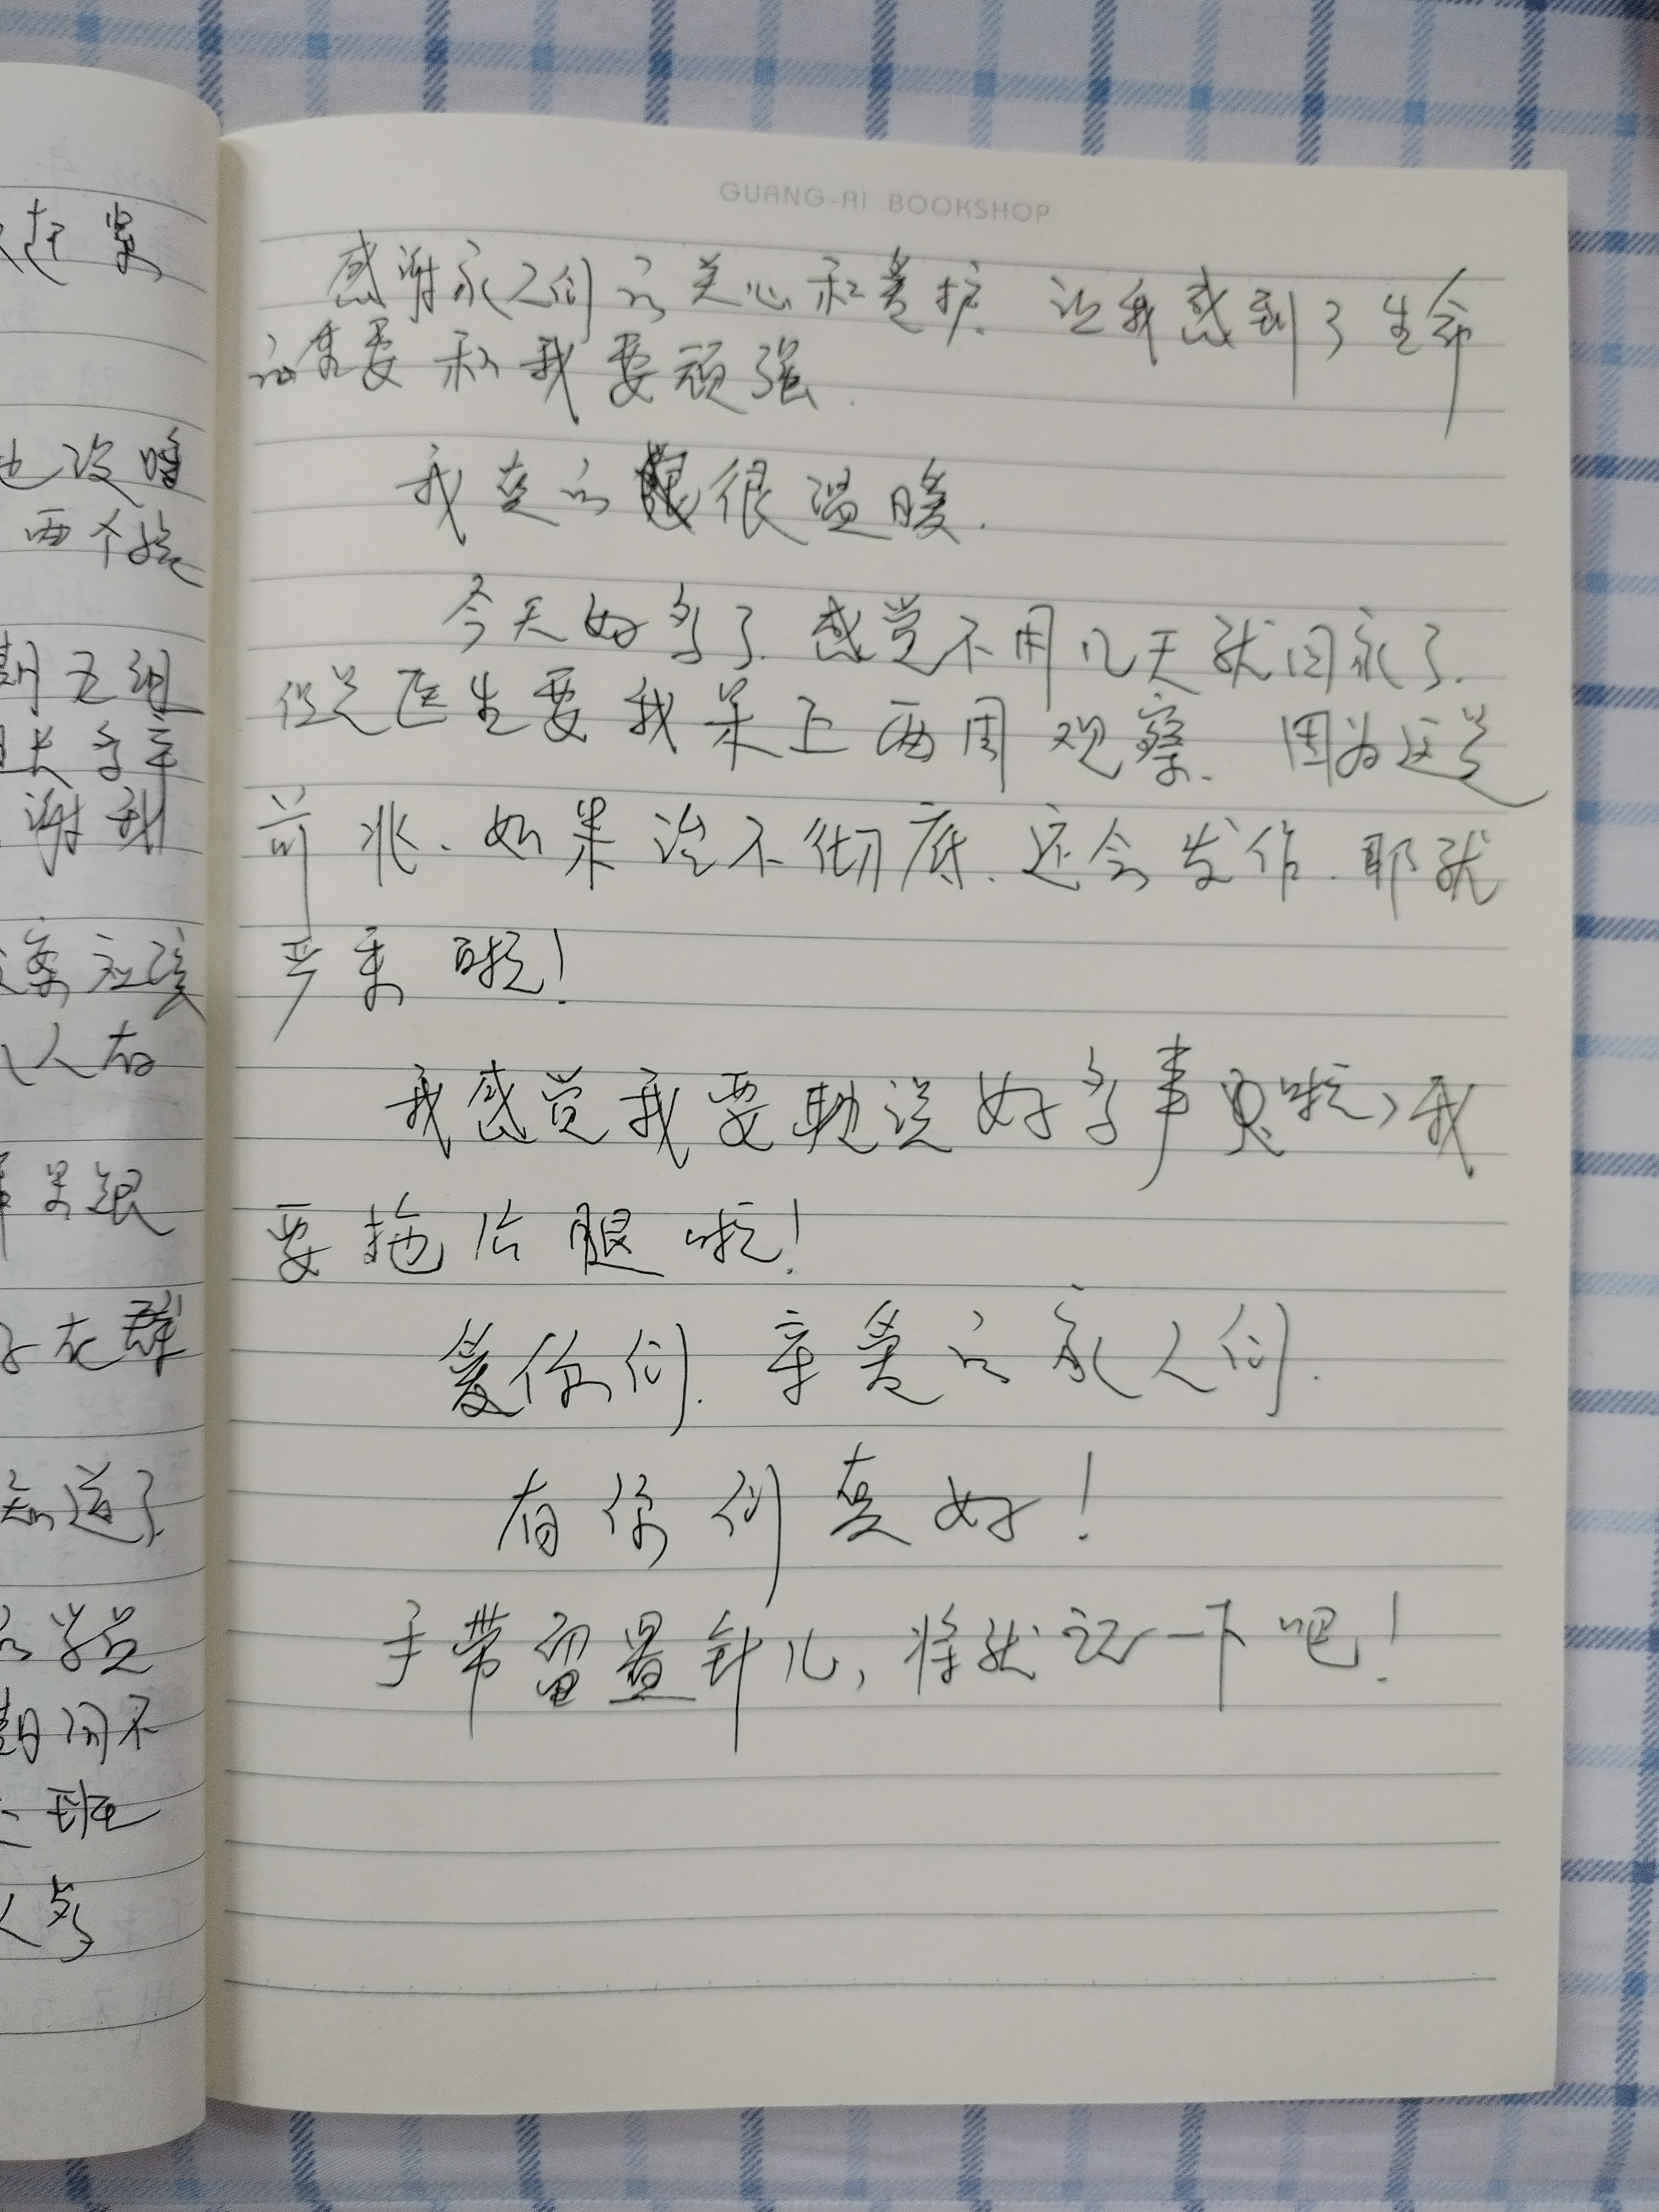 GUANG-AI BOOKSHOP
感谢家人们的关心和爱护.让我感到了生命
的重要和我要顽强.
我真的很温暖.
今天好多了.感觉不用几天就回家了.
但是医生要我呆上两周观察、因为这是
前兆.如果治不彻底.还会发作.耶就
严重啦!
我感觉我要耽误好多事啦,我
要拖后腿啦!
爱你们.亲爱的家人们.
有你们真好!
手带留置针儿,将就记一下吧!
赶紧
也没
两个孩
期五组
长多辛
谢我
案应该
人在
在群
知道了
的学员
期间不
班
岁